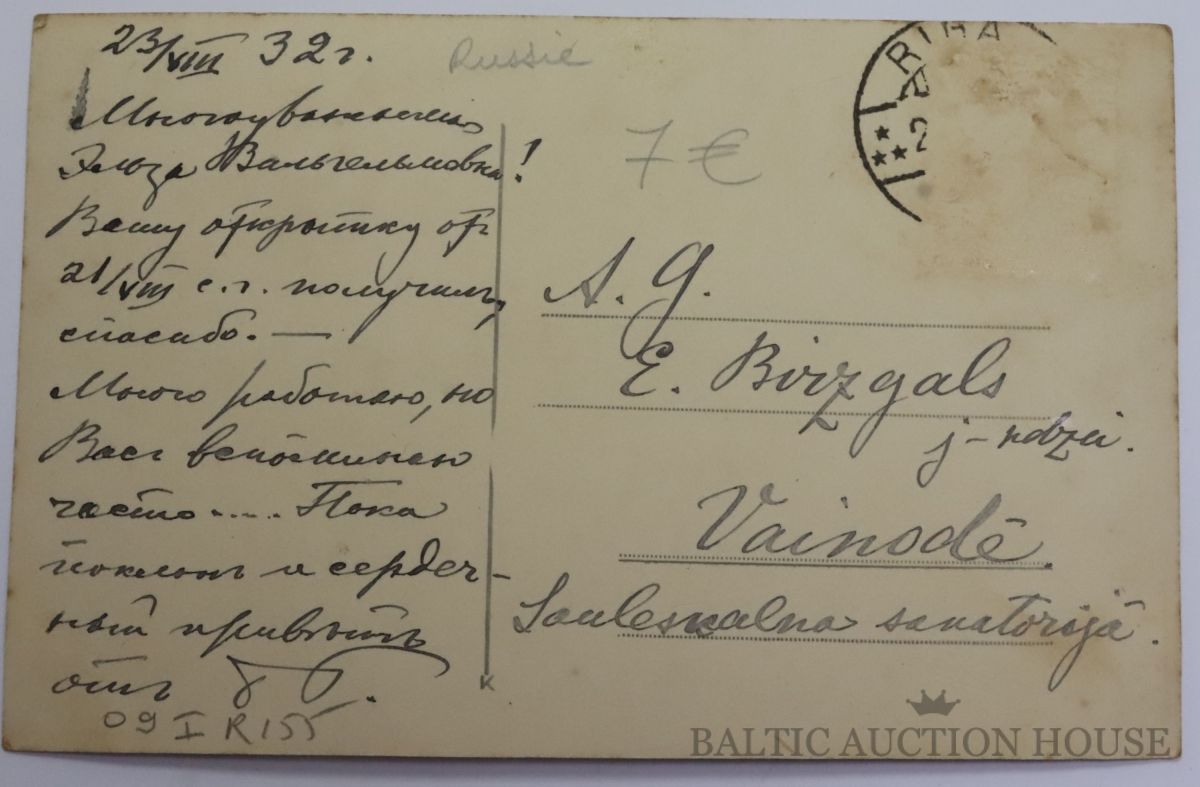 23/VIII 32 г.
Многоуважаемая
Эльза Вильгельмовна!
Вашу открытку отъ
21/VIII с. г. получилъ,
спасибо. —
Много работаю, но
Васъ вспоминаю
часто.... Пока
поклонъ и сердеч-
ный привѣтъ
отъ
09 I R155
Russie
7 €
RIGA
2
A. g.
E. Birzgals
j-kdzei.
Vainodē
Sauleskalna sanatorijā.
BALTIC AUCTION HOUSE